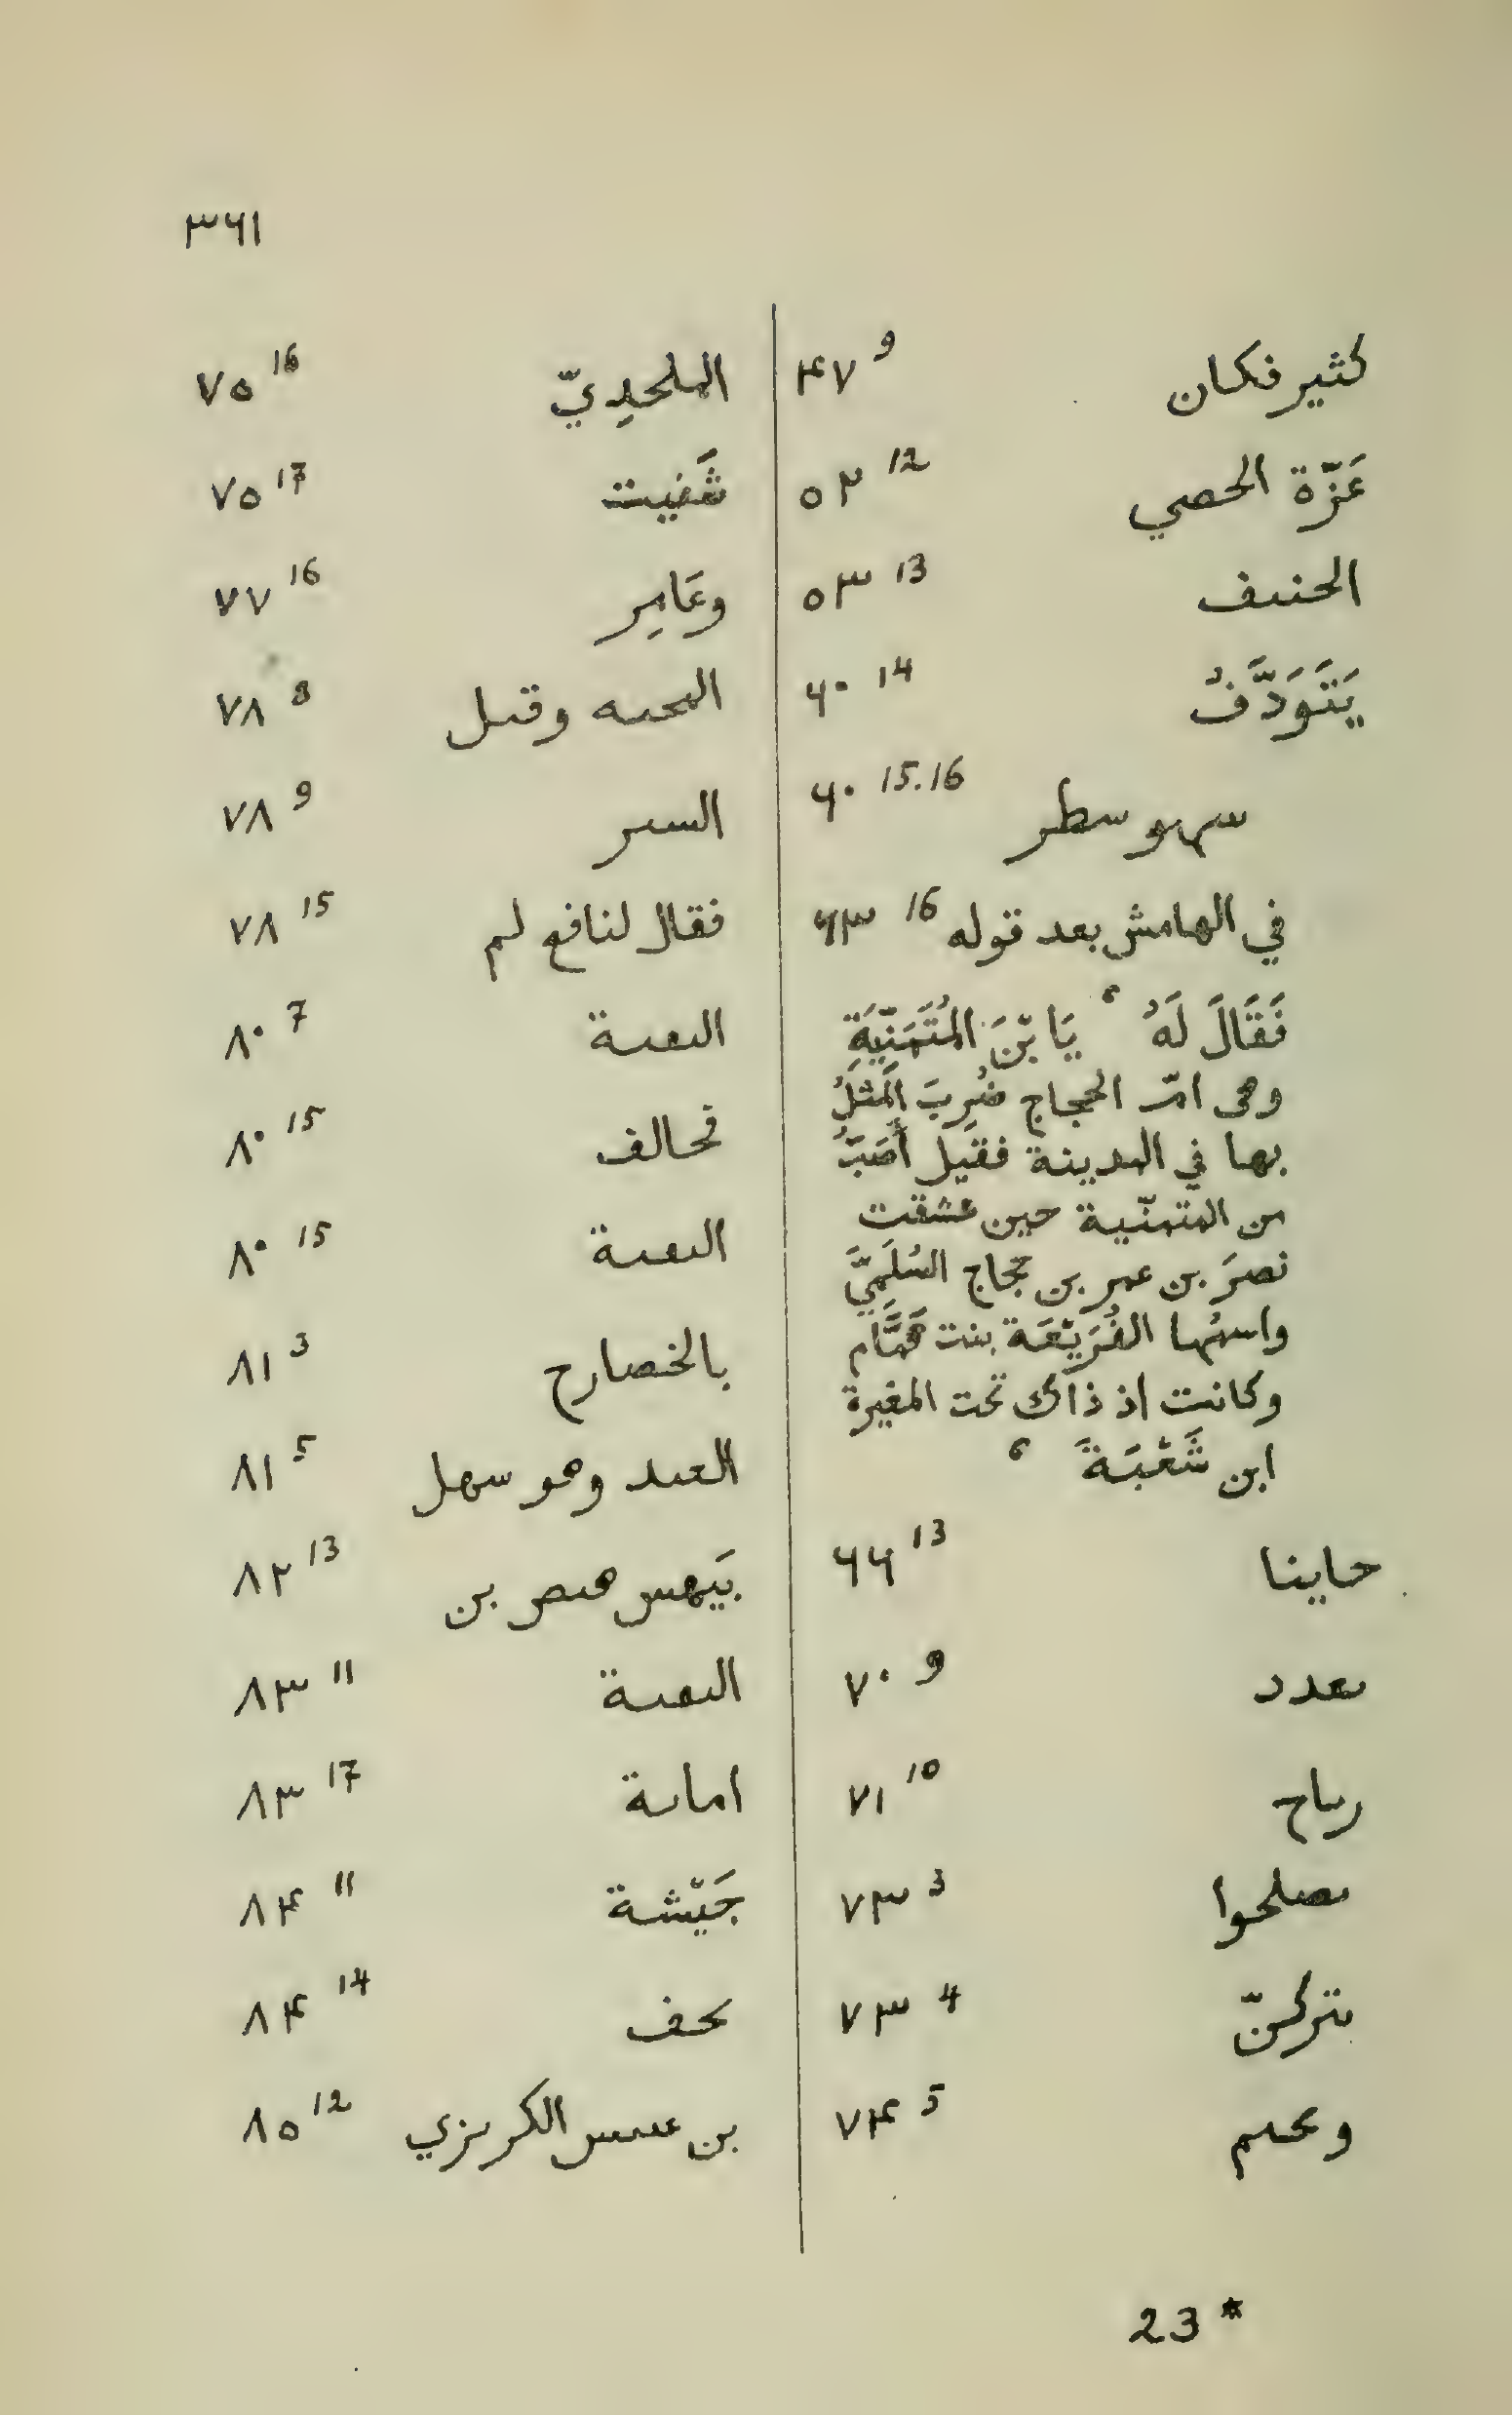 ٣٦١
كثير فكان ٤٧ 9
عَزّة الحصي ٥٢ 12
الحنىف ٥٣ 13
يَتَوَدَّفُ ٦٠ 14
سهو سطر ٦٠ 15.16
في الهامش بعد قوله ٦٣ 16
فَقَالَ لَهُ ، يَا بْنَ المُتَمَنِّيَةِ
وهى امّ الحجاج ضُرِبَ المَثَلُ
بها في المدينة فقيل أَصَبُّ
من المتمنّية حين عشقت
نصرَ بن عمر بن حجاج السُلَمِيَّ
واسمُها الفُرَيْعَة بنت هَمَّام
وكانت اذ ذاك تحت المغيرة
ابن شَعْبَةَ ،
حاينا ٦٦ 13
ٮعدد ٧٠ 9
رٮاح ٧١ 10
ٮصلحوا ٧٣ 3
ٮتركنّ ٧٣ 4
وٮحىم ٧٤ 5
الملحدِيّ ٧٥ 16
شَفيت ٧٥ 17
وعَامِر ٧٧ 16
المحىه وقىل ٧٨ 8
السىر ٧٨ 9
فقال لنافع لم ٧٨ 15
الىعىة ٨٠ 7
فحالف ٨٠ 15
الىعىة ٨٠ 15
بالخصارح ٨١ 3
العىد وهو سهل ٨١ 5
بَيهس هىصر بن ٨٢ 13
الىعىة ٨٣ 11
اماىة ٨٣ 17
جَيْشة ٨٤ 11
ٮحف ٨٤ 14
بن عىىس الكرىزي ٨٥ 12
23 *